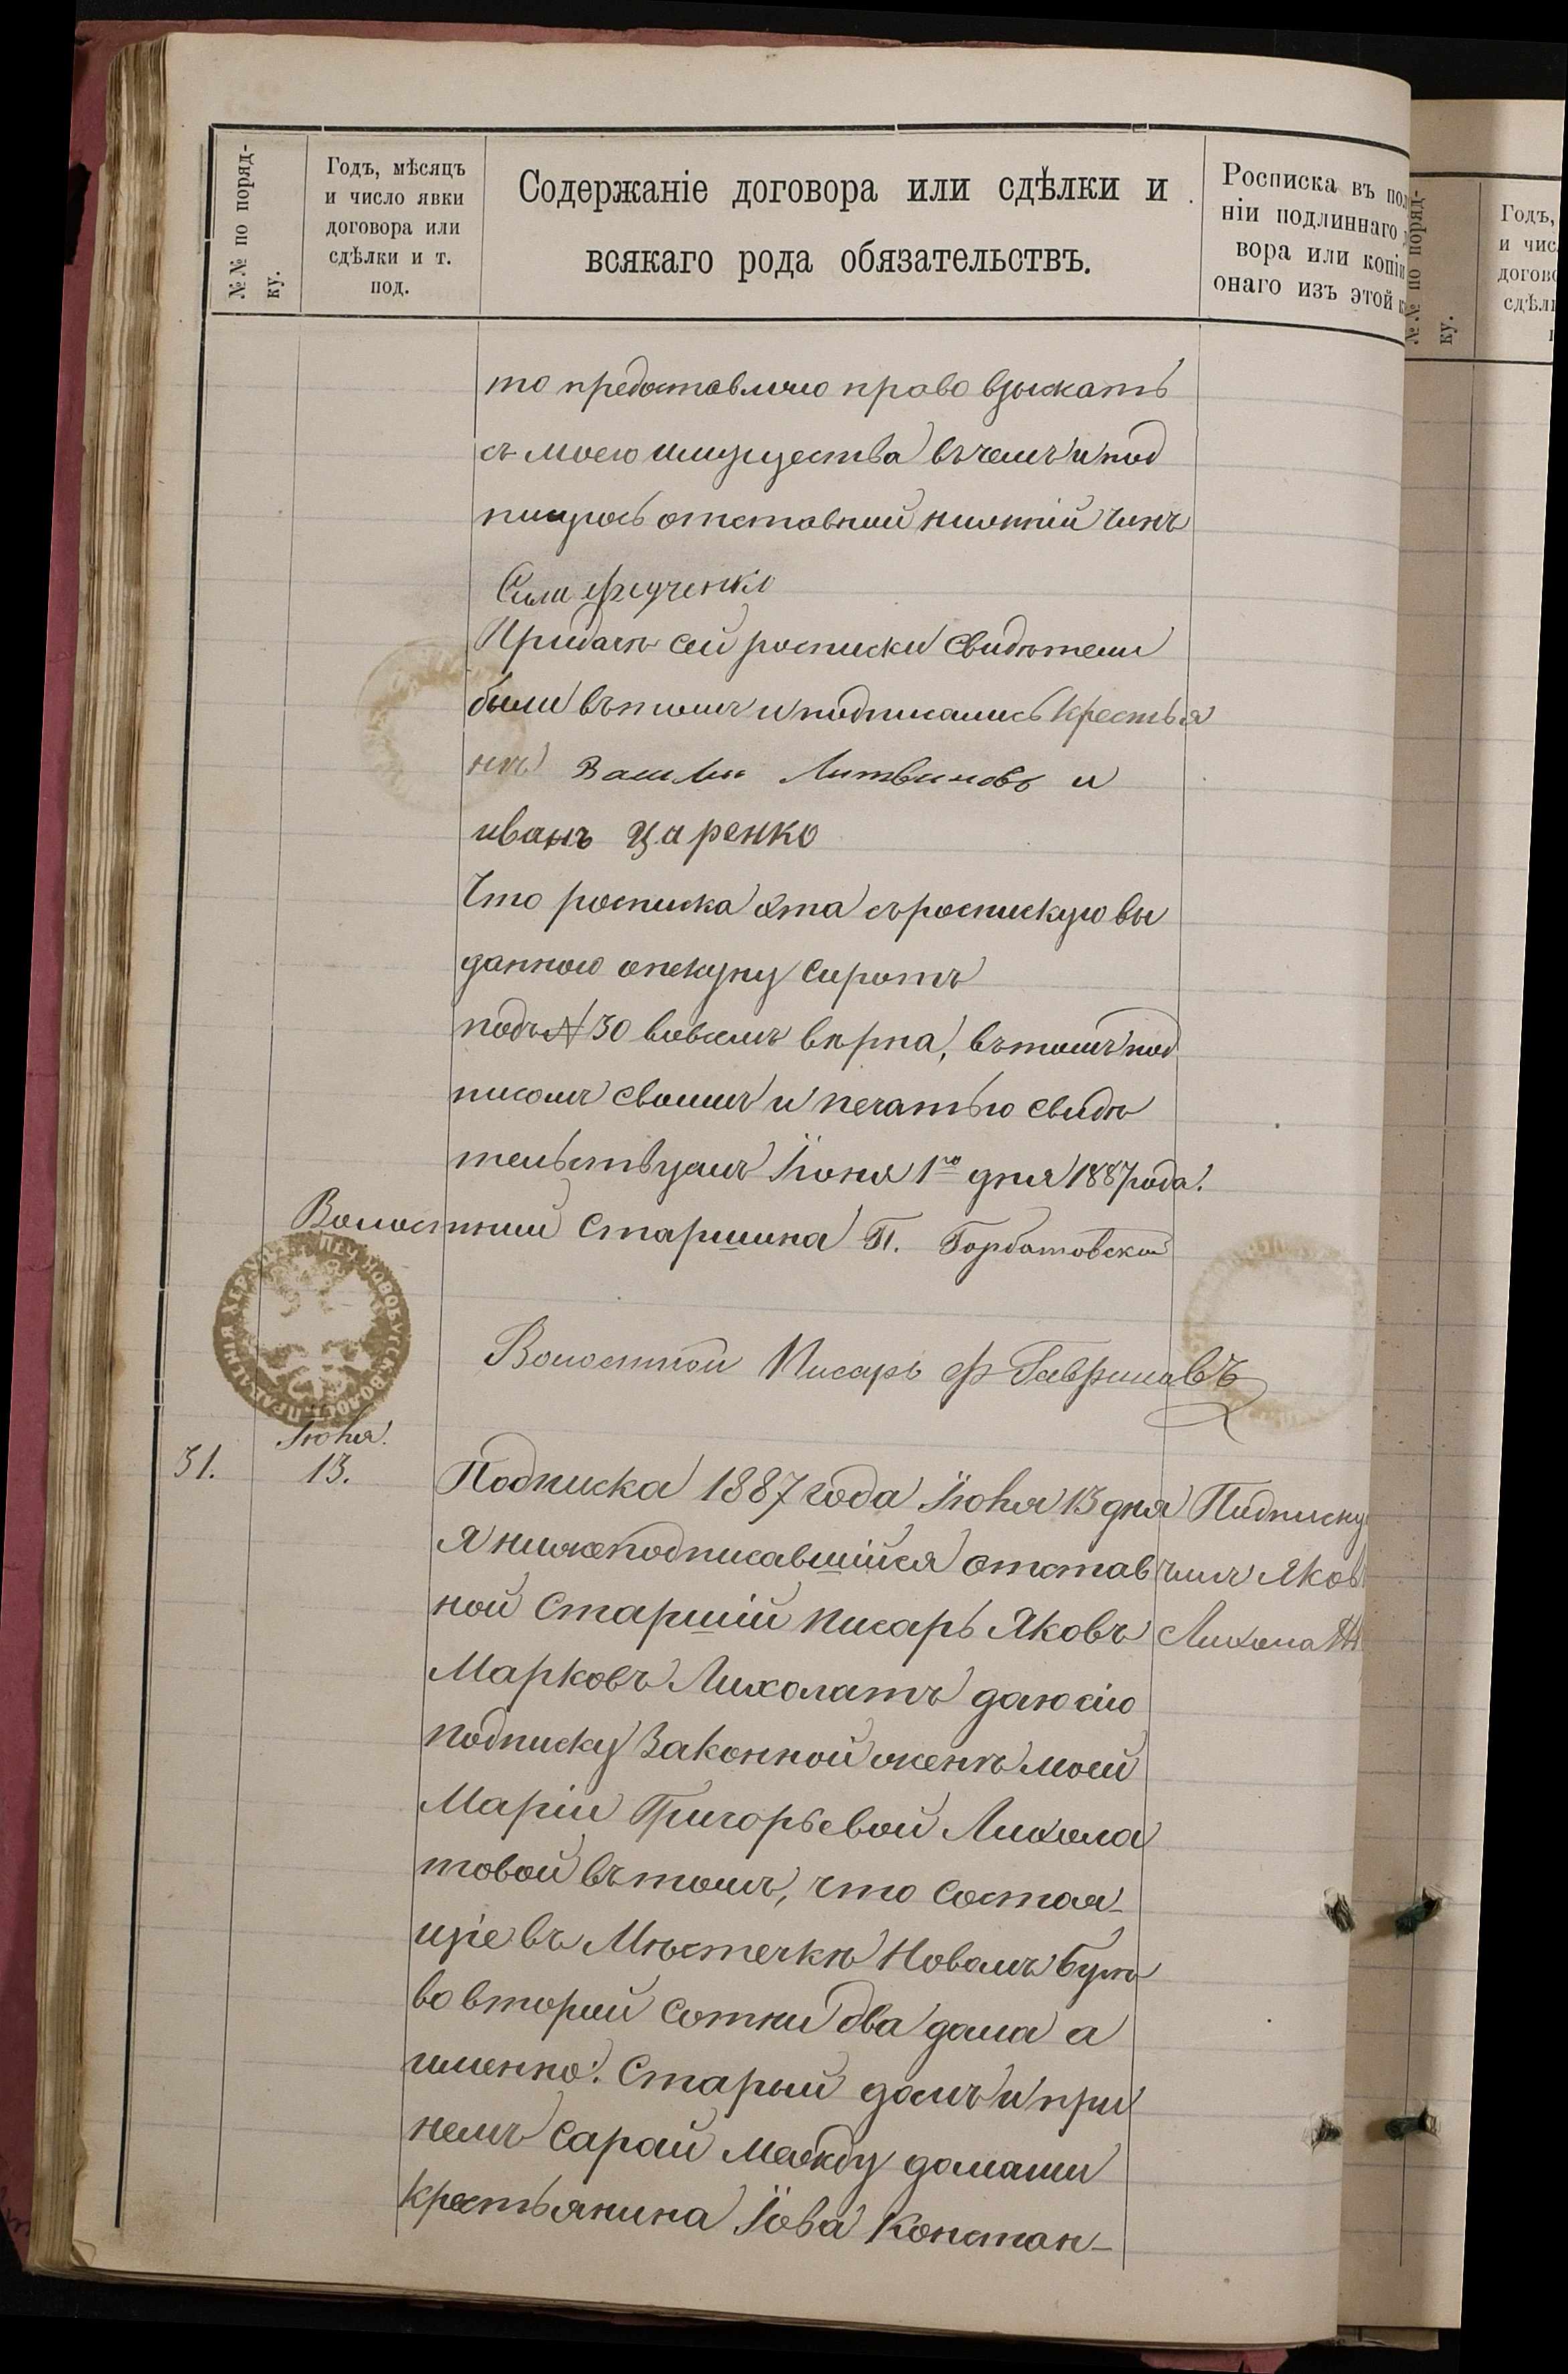 №№ по поряд-
ку.
Годъ, мѣсяцъ
и число явки
договора или
сдѣлки и т.
под.
Содержаніе договора или сдѣлки и
всякаго рода обязательствъ.
Росписка въ пол
ніи подлиннаго
вора или копіи
онаго изъ этой к
то предоставляю право взыскать
съ моего имущества въ чемъ и под
писуюсь отставной нижній чинъ
Сила
Придачѣ сей росписки свидѣтели
были въ томъ и подписались крестья
нѣ Василій Литвиновъ и
иванъ Царенко
Что росписка эта съ роспискую вы
данною опекуну сиротъ
подъ № 30 вовсемъ вѣрна, въ томъ под
писомъ своимъ и печатью свидѣ
тельствуемъ Іюня 1го дня 1887 года.
Волостной Старшина П. Горбатовскій
Волостной Писарь Ф Гавриловъ
31.
Іюня
13.
Подписка 1887 года Іюня 13 дня
я нижеподписавшійся отстав
ной старшій писарь Яковъ
Марковъ Лихолатъ даю сію
подписку законной женѣ моей
Маріи Григорьевой Лихола
товой въ томъ, что состоя-
щіе въ Мѣстечкѣ Новомъ Бугѣ
во второй сотни два дома а
именно: Старый домъ и при
немъ сарай между домами
крестьянина Іова Констан-
Подписку
чилъ Яковъ
Лихолатъ
№№ по поряд-
ку.
Годъ,
и чис
догово
сдѣл